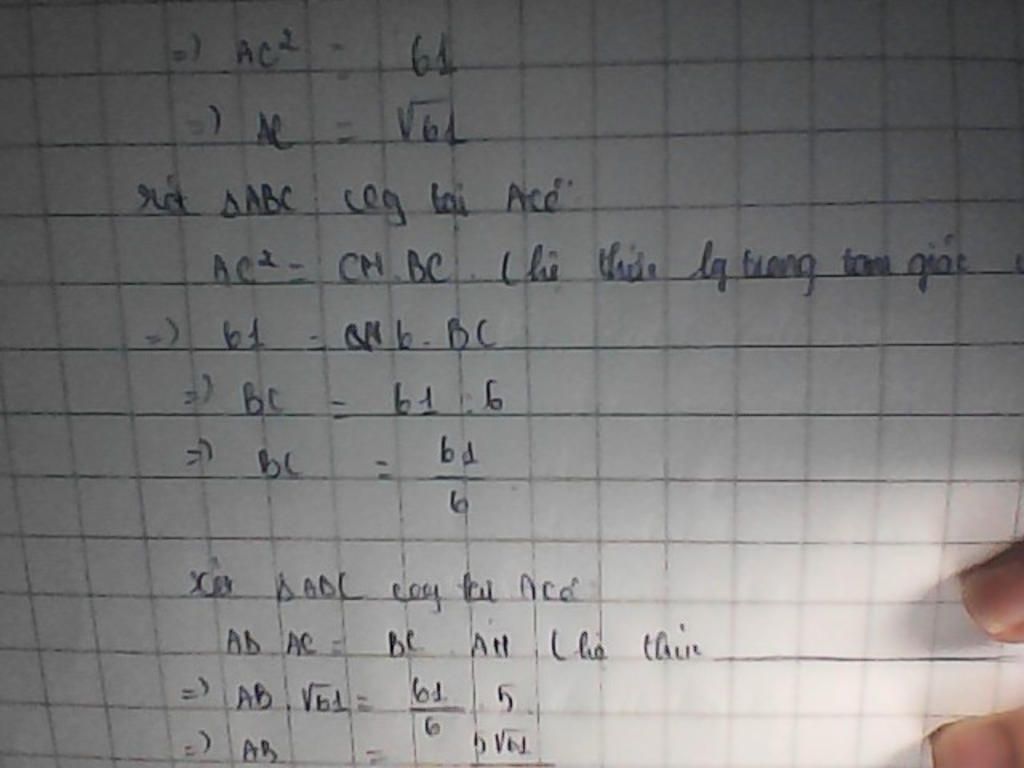 => AC² = 61
=> AC = √61
xét ΔABC vuông tại A có
AC² = CH.BC (hệ thức lg trong tam giác
=> 61 = 6.BC
=> BC = 61 : 6
=> BC = 61/6
xét ΔABC vuông tại A có
AB AC = BC AH (hệ thức
=> AB . √61 = 61/6 5
=> AB = 5√61